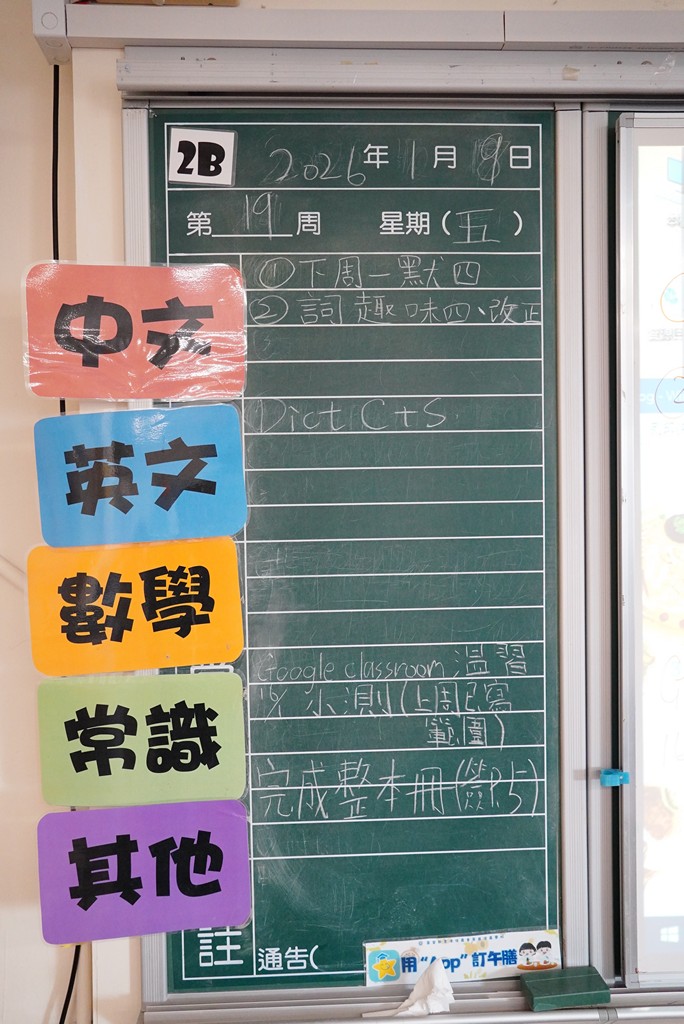 2B
2026年1月9日
第19周 星期(五)
中文
①下周一默四
②詞趣味四、改正
英文
Dict C+S
數學
常識
Google classroom 溫習
小測(上周已寫
範圍)
其他
完成整本冊(簽P.5)
註
通告(
用“App”訂午膳